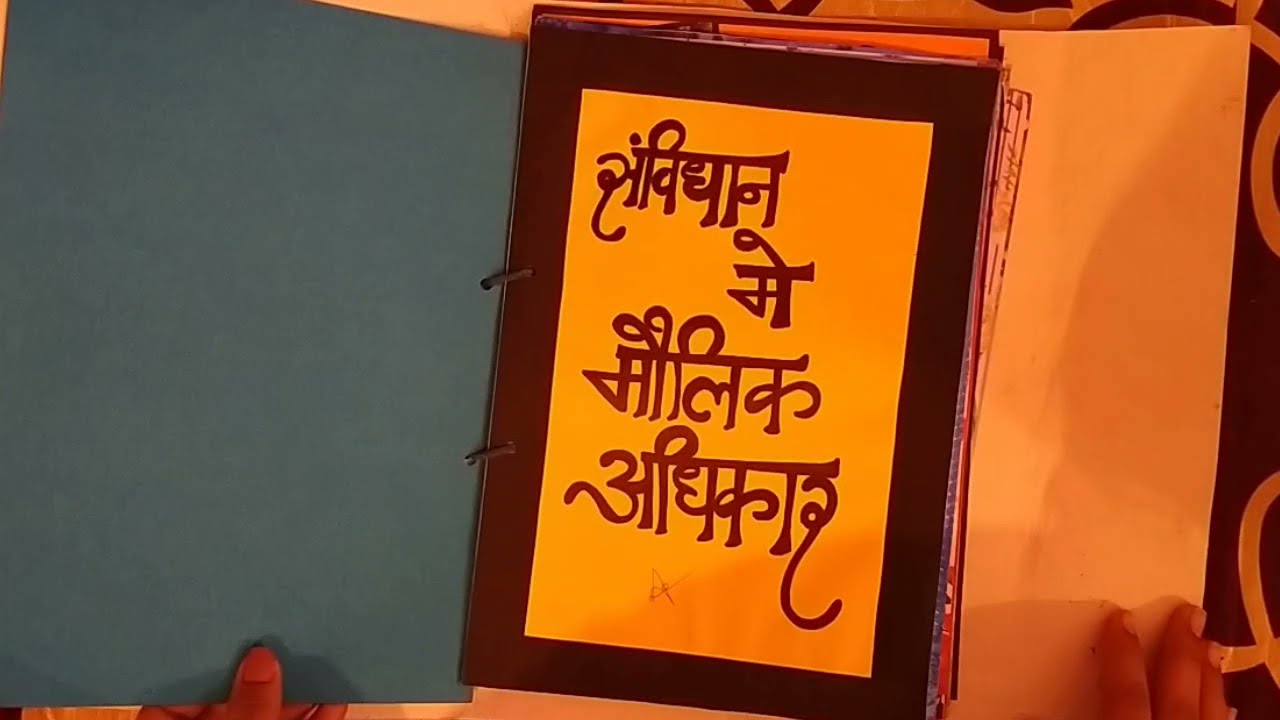 संविधान
मे
मौलिक
अधिकार